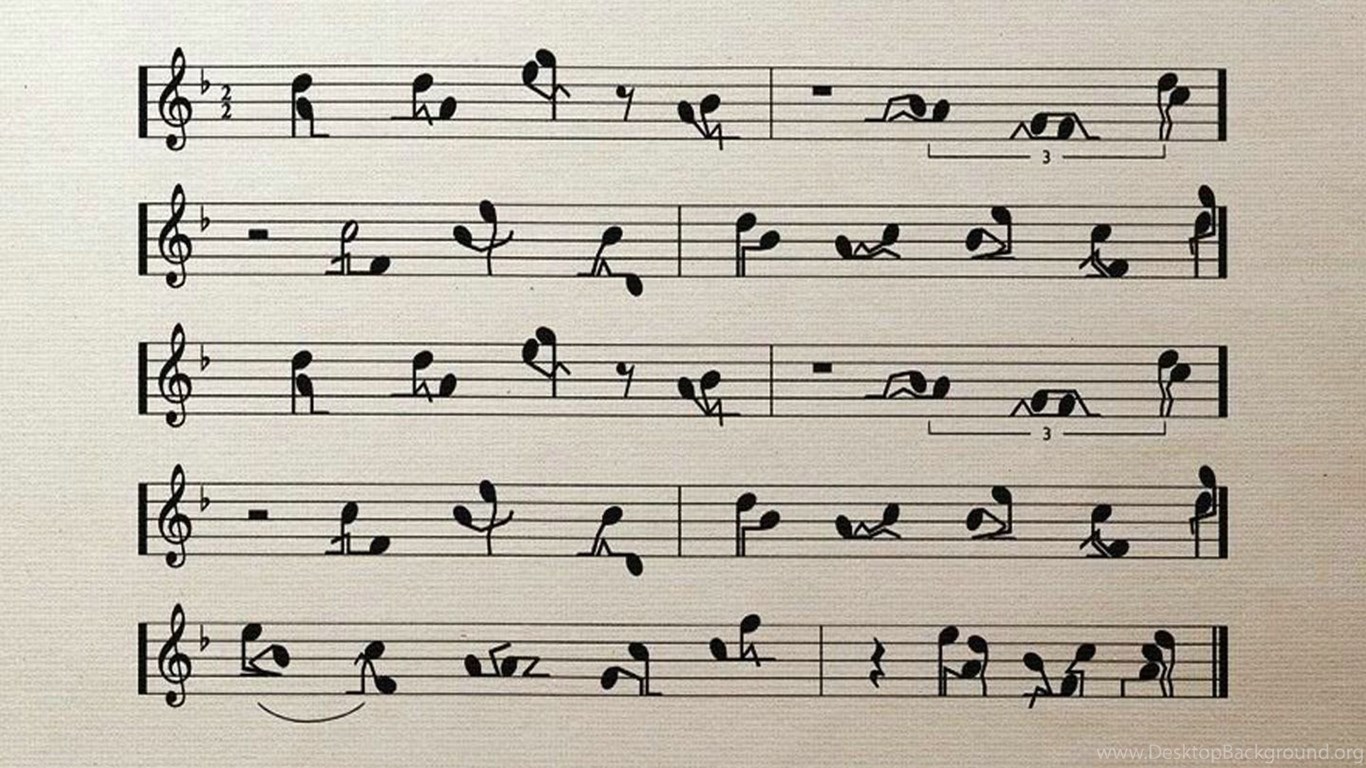 2
2
3
3
www.DesktopBackground.org